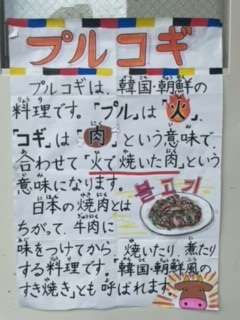 プルコギ
プルコギは、韓国・朝鮮の
料理です。「プル」は「火」
「コギ」は「肉」という意味で、
合わせて「火で焼いた肉」という
意味になります。
불고기
日本の焼肉とは
ちがって、牛肉に
味をつけてから、焼いたり、煮たり
する料理です。「韓国・朝鮮風の
すき焼き」とも呼ばれます。